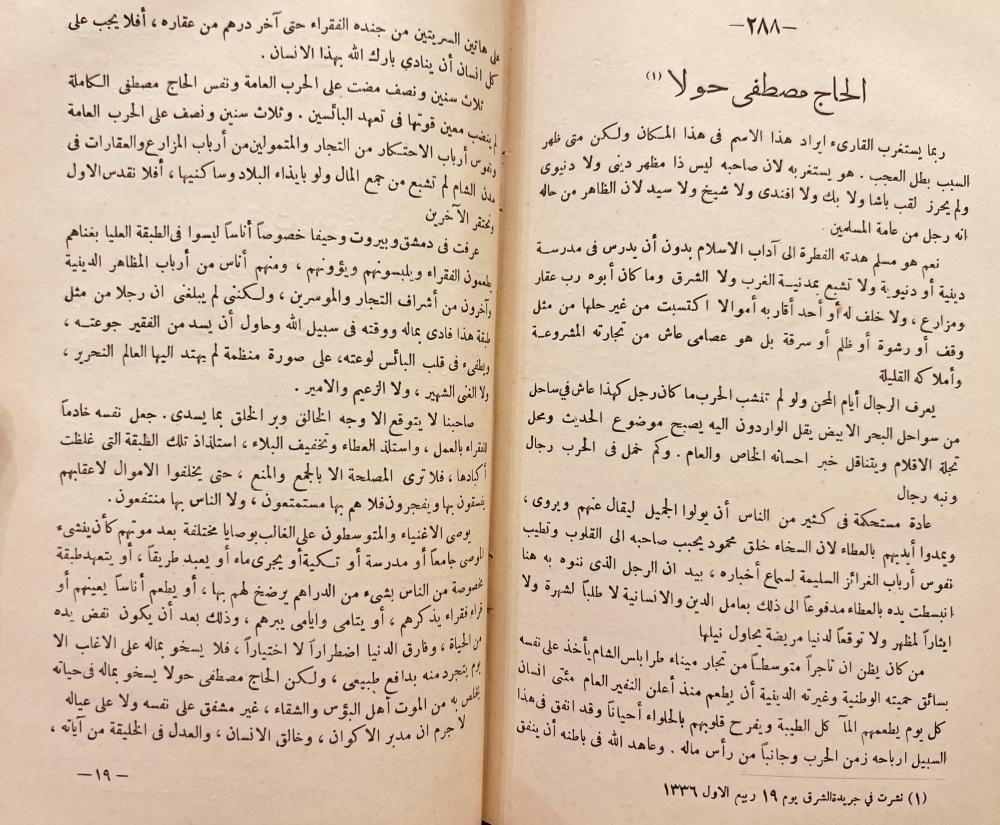 —٢٨٨—
الحاج مصطفى حولا (١)
ربما يستغرب القارىء ايراد هذا الاسم فى هذا المكان ولكن متى ظهر
السبب بطل العجب . هو يستغربه لان صاحبه ليس ذا مظهر دينى ولا دنيوى
ولم يحرز لقب باشا ولا بك ولا افندى ولا شيخ ولا سيد لان الظاهر من حاله
انه رجل من عامة المسلمين .
نعم هو مسلم هدته الفطرة الى آداب الاسلام بدون أن يدرس فى مدرسة
دينية أو دنيوية ولا تشبع بمدنية الغرب ولا الشرق وما كان أبوه رب عقار
ومزارع ، ولا خلف له أو أحد أقاربه أموالا اكتسبت من غير حلها من مثل
وقف أو رشوة أو ظلم أو سرقة بل هو عصامى عاش من تجارته المشروعة
وأملاكه القليلة
يعرف الرجال أيام المحن ولو لم تنشب الحرب ما كان رجل كهذا عاش فى ساحل
من سواحل البحر الابيض يقل الواردون اليه يصبح موضوع الحديث ومحل
تجلة الاقلام ويتناقل خبر احسانه الخاص والعام . وكم خمل فى الحرب رجال
ونبه رجال
عادة مستحكمة فى كثير من الناس أن يولوا الجميل ليقال عنهم ويروى ،
ويمدوا أيديهم بالعطاء لان السخاء خلق محمود يحبب صاحبه الى القلوب وتطيب
نفوس أرباب الغرائز السليمة لسماع أخباره ، بيد ان الرجل الذى ننوه به هنا
انبسطت يده بالعطاء مدفوعاً الى ذلك بعامل الدين والانسانية لا طلباً لشهرة ولا
ايثاراً لمظهر ولا توقعاً لدنيا مريضة يحاول نيلها
من كان يظن ان تاجراً متوسطاً من تجار ميناء طرابلس الشام يأخذ على نفسه
بسائق حميته الوطنية وغيرته الدينية أن يطعم منذ أعلن النفير العام مئتى انسان
كل يوم يطعمهم المآكل الطيبة ويفرح قلوبهم بالحلواء أحياناً وقد انفق فى هذا
السبيل ارباحه زمن الحرب وجانباً من رأس ماله . وعاهد الله فى باطنه أن ينفق
(١) نشرت في جريدة الشرق يوم ١٩ ربيع الاول ١٣٣٦
على هاتين السريتين من جنده الفقراء حتى آخر درهم من عقاره ، أفلا يجب على
كل انسان أن ينادي بارك الله بهذا الانسان .
ثلاث سنين ونصف مضت على الحرب العامة ونفس الحاج مصطفى الكاملة
لم ينضب معين قوتها فى تعهد البائسين . وثلاث سنين ونصف على الحرب العامة
ونفوس أرباب الاحتكار من التجار والمتمولين من أرباب المزارع والعقارات فى
مدن الشام لم تشبع من جمع المال ولو بايذاء البلاد وساكنيها ، أفلا نقدس الاول
ونحتقر الآخرين
عرفت فى دمشق وبيروت وحيفا خصوصاً أناساً ليسوا فى الطبقة العليا بغناهم
يطعمون الفقراء ويلبسونهم ويؤونهم ، ومنهم أناس من أرباب المظاهر الدينية
وآخرون من أشراف التجار والموسرين ، ولكننى لم يبلغنى ان رجلا من مثل
طبقة هذا فادى بماله ووقته فى سبيل الله وحاول أن يسد من الفقير جوعته ،
ويطفىء فى قلب البائس لوعته، على صورة منظمة لم يهتد اليها العالم النحرير ،
ولا الغنى الشهير ، ولا الزعيم والامير .
صاحبنا لا يتوقع الا وجه الخالق وبر الخلق بما يسدى . جعل نفسه خادماً
للفقراء بالعمل ، واستلذ العطاء وتخفيف البلاء ، استلذاذ تلك الطبقة التى غلظت
أكبادها ، فلا ترى المصلحة الا بالجمع والمنع ، حتى يخلفوا الاموال لاعقابهم
يفسقون بها ويفجرون فلا هم بها مستمتعون ، ولا الناس بها منتفعون.
يوصى الاغنياء والمتوسطون على الغالب بوصايا مختلفة بعد موتهم كأن ينشىء
الموصى جامعاً أو مدرسة أو تكية أو يجرى ماء أو يعبد طريقاً ، أو يتعهد طبقة
مخصوصة من الناس بشىء من الدراهم يرضخ لهم بها ، أو يطعم أناساً يعينهم أو
قراء فقراء يذكرهم ، أو يتامى وايامى يبرهم ، وذلك بعد أن يكون نفض يده
من الحياة ، وفارق الدنيا اضطراراً لا اختياراً ، فلا يسخو بماله على الاغلب الا
يوم يتجرد منه بدافع طبيعى ، ولكن الحاج مصطفى حولا يسخو بماله فى حياته
يخلص به من الموت أهل البؤس والشقاء ، غير مشفق على نفسه ولا على عياله
لا جرم ان مدبر الاكوان ، وخالق الانسان ، والعدل فى الخليقة من آياته ،
— ١٩ —